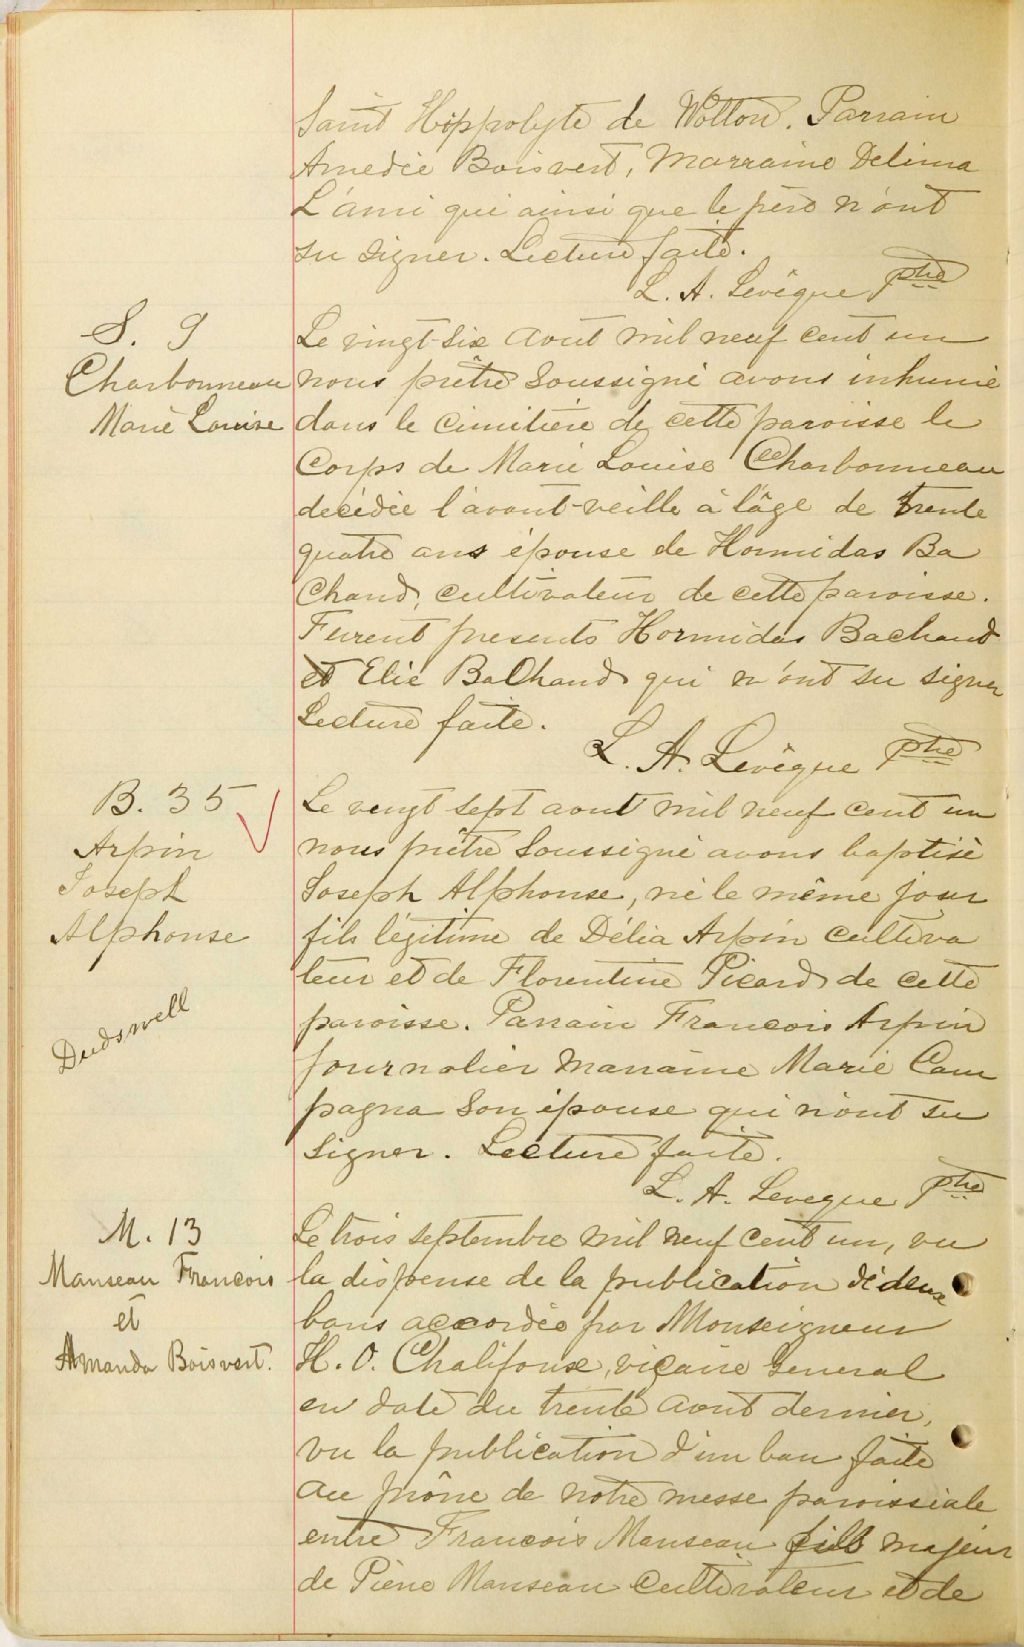 Saint Hippolyte de Wotton. Parrain
Amedée Boisvert, Marraine Delima
L'ami qui ainsi que le père n'ont
su signer. Lecture faite.
L. A. Levêque Ptre
S. 9
Charbonneau
Marie Louise
Le vingt-six aout mil neuf cent un
nous prêtre soussigné avons inhumé
dans le cimitière de cette paroisse le
Corps de Marie Louise Charbonneau
decédée l'avant-veille à l'âge de trente
quatre ans épouse de Hormidas Ba
Chand, cultivateur de cette paroisse.
Furent presents Hormidas Bachand
et Elie BaChand qui n'ont su signer
Lecture faite.
L. A. Levêque Ptre
B. 35
Arpin
Joseph
Alphonse
Dudswell
Le vingt sept aout mil neuf cent un
nous prêtre soussigné avons baptisé
Joseph Alphonse, né le même jour
fils légitime de Délia Arpin cultiva
teur et de Florentine Picard de cette
paroisse. Parrain Francois Arpin
journalier Marraine Marie Cam
pagna son épouse qui n'ont su
signer. Lecture faite.
L. A. Leveque Ptre
M. 13
Manseau Francois
et
Amanda Boisvert.
Le trois septembre mil neuf cent un, vu
la dispense de la publication de deux
bans accordée par Monseigneur
H. O. Chalifoux, vicaire General
en date du trente aout dernier,
vu la publication d'un ban faite
au prône de notre messe paroissiale
entre Francois Manseau fils majeur
de Pierre Manseau cultivateur et de